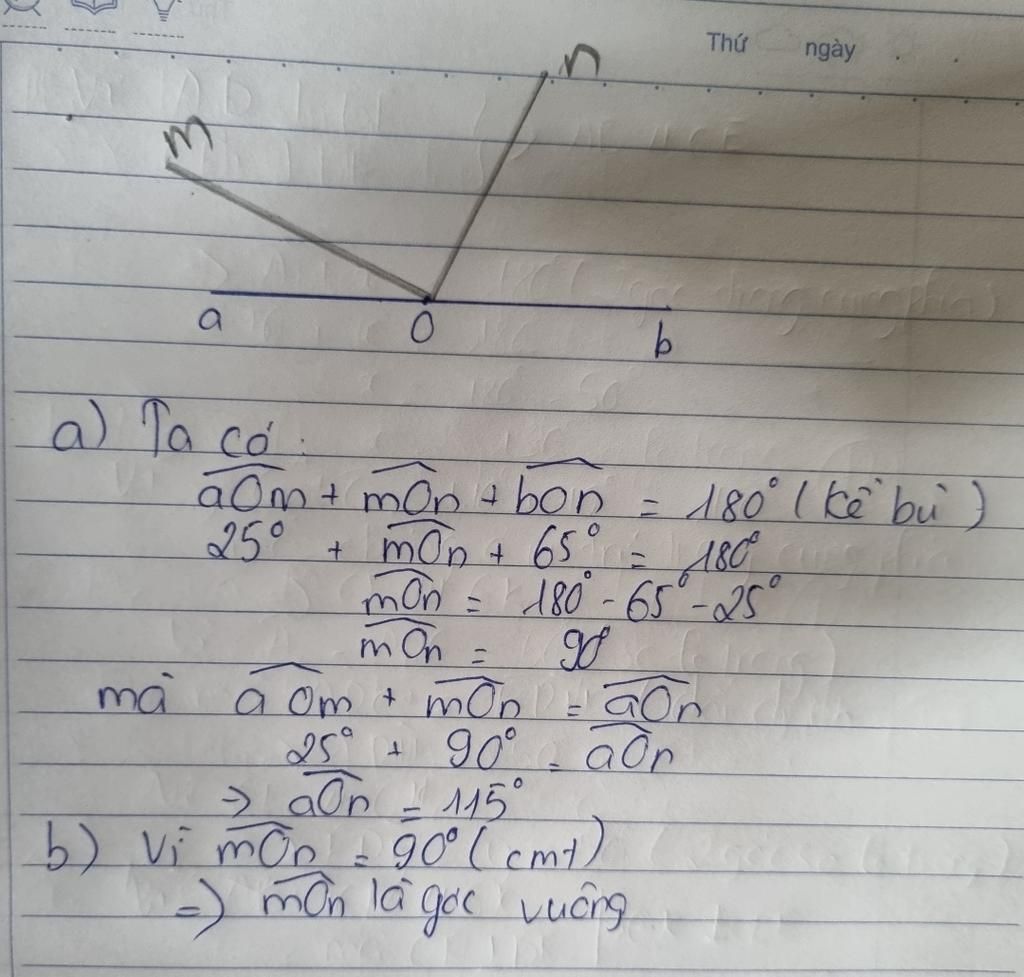 Thứ ngày
n
m
a O b
a) Ta có:
aOm + mOn + bOn = 180° (kề bù)
25° + mOn + 65° = 180°
mOn = 180° - 65° - 25°
mOn = 90°
mà aOm + mOn = aOn
25° + 90° = aOn
=> aOn = 115°
b) Vì mOn = 90° (cmt)
=> mOn là góc vuông